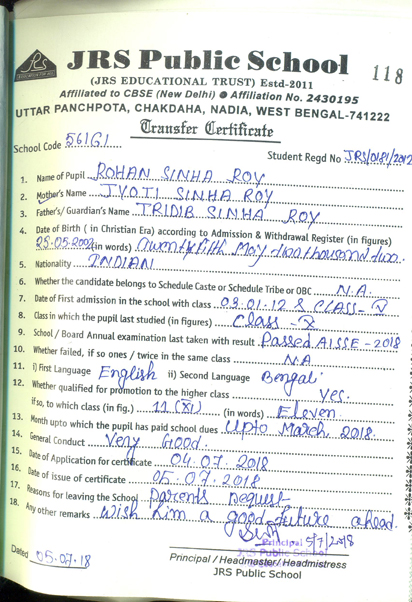 JRS Public School
118
(JRS EDUCATIONAL TRUST) Estd-2011
Affiliated to CBSE (New Delhi) ● Affiliation No. 2430195
UTTAR PANCHPOTA, CHAKDAHA, NADIA, WEST BENGAL-741222
Transfer Certificate
School Code 56161
Student Regd No JRS/0181/2012
1. Name of Pupil ROHAN SINHA ROY
2. Mother's Name JYOTI SINHA ROY
3. Father's/ Guardian's Name TRIDIB SINHA ROY
4. Date of Birth ( in Christian Era) according to Admission & Withdrawal Register (in figures)
25.05.2002 (in words) Twenty fifth May two thousand two.
5. Nationality INDIAN
6. Whether the candidate belongs to Schedule Caste or Schedule Tribe or OBC N.A.
7. Date of First admission in the school with class 03.01.12 & CLASS- V
8. Class in which the pupil last studied (in figures) Class - X
9. School / Board Annual examination last taken with result Passed AISSE - 2018
10. Whether failed, if so ones / twice in the same class N.A
11. i) First Language English ii) Second Language Bengali
12. Whether qualified for promotion to the higher class yes.
if so, to which class (in fig.) 11 (XI) (in words) Eleven
13. Month upto which the pupil has paid school dues Upto March 2018.
14. General Conduct Very Good.
15. Date of Application for certificate 04.07.2018
16. Date of issue of certificate 05.07.2018
17. Reasons for leaving the School Parents Request
18. Any other remarks Wish him a good future ahead.
5/7/2018
Principal
JRS Public School
Dated 05.07.18
Principal / Headmaster/ Headmistress
JRS Public School